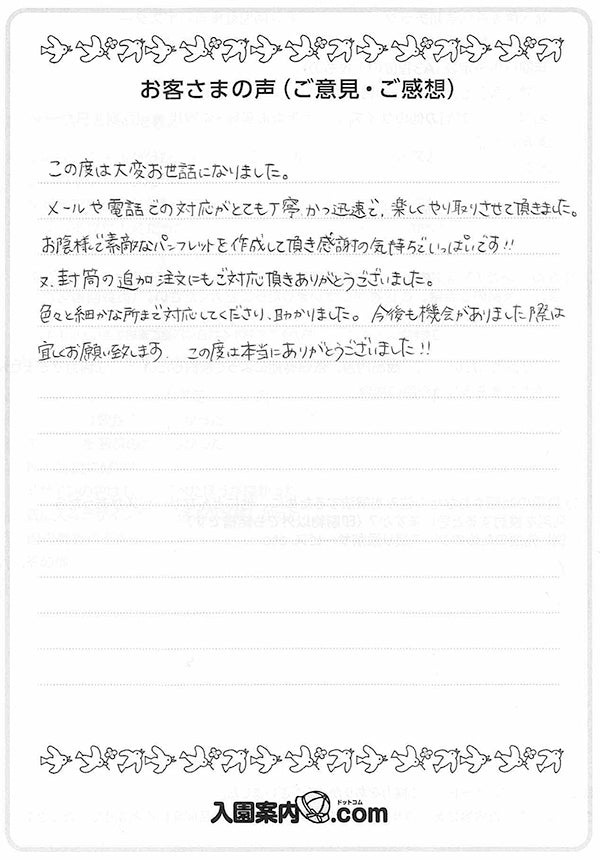 お客さまの声（ご意見・ご感想）
この度は大変お世話になりました。
メールや電話での対応がとても丁寧かつ迅速で、楽しくやり取りさせて頂きました。
お陰様で素敵なパンフレットを作成して頂き感謝の気持ちでいっぱいです!!
又、封筒の追加注文にもご対応頂きありがとうございました。
色々と細かな所まで対応してくださり、助かりました。今後も機会がありました際は
宜しくお願い致します。この度は本当にありがとうございました!!
入園案内ドットコム.com